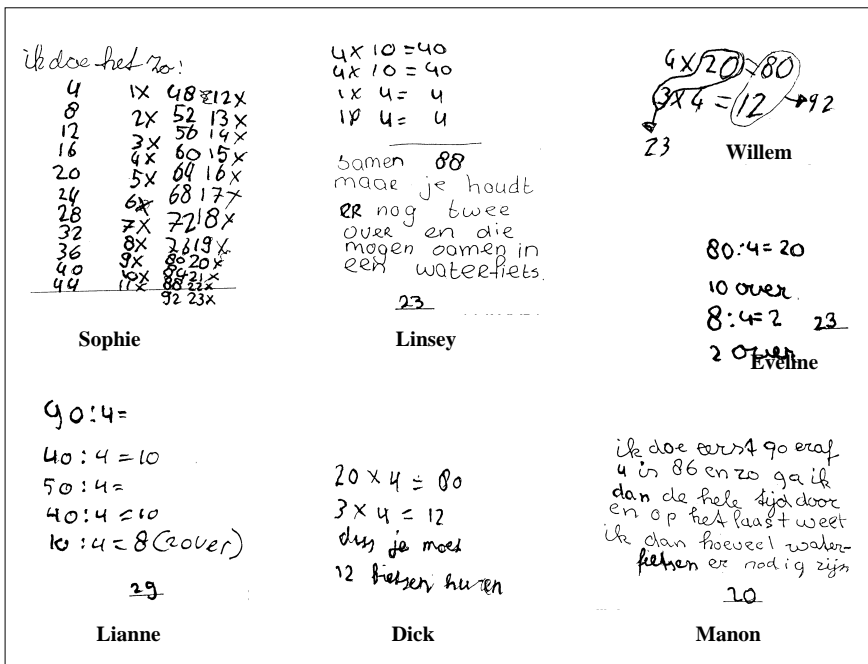 ik doe het zo:
4 1x 48=12x
8 2x 52 13x
12 3x 56 14x
16 4x 60 15x
20 5x 64 16x
24 6x 68 17x
28 7x 72 18x
32 8x 76 19x
36 9x 80 20x
40 10x 84 21x
44 11x 88 22x
92 23x
Sophie
4x 10 = 40
4x 10 = 40
1x 4 = 4
1x 4 = 4
samen 88
maar je houdt
er nog twee
over en die
mogen samen in
een waterfiets.
23
Linsey
4x20=80
3x4=12 → 92
23
Willem
80:4=20
10 over.
8:4=2 23
2 over
Eveline
90:4=
40:4=10
50:4=
40:4=10
10:4=8(2over)
29
Lianne
20 x 4 = 80
3 x 4 = 12
dus je moet
12 fietsen huren
Dick
ik doe eerst 90 eraf
4 is 86 en zo ga ik
dan de hele tijd door
en op het laast weet
ik dan hoeveel water-
fietsen er nodig zijn
20
Manon